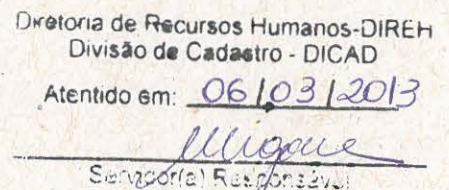 Diretoria de Recursos Humanos-DIREH
Divisão de Cadastro - DICAD
Atentido em: 06/03/2013
Servidor(a) Responsável